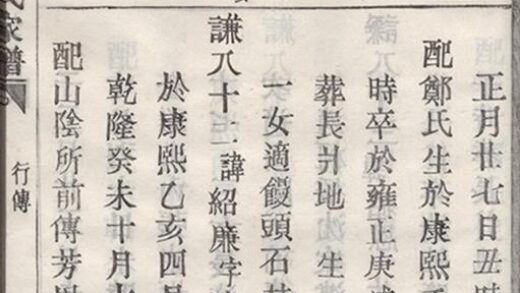 正月廿七日丑時
配鄭氏生於康熙
時卒於雍正庚
葬長爿地 生
一女適饅頭石
謙八十二諱紹廉字
於康熙乙亥四月
乾隆癸未十月
配山陰所前傳芳
行傳
家譜